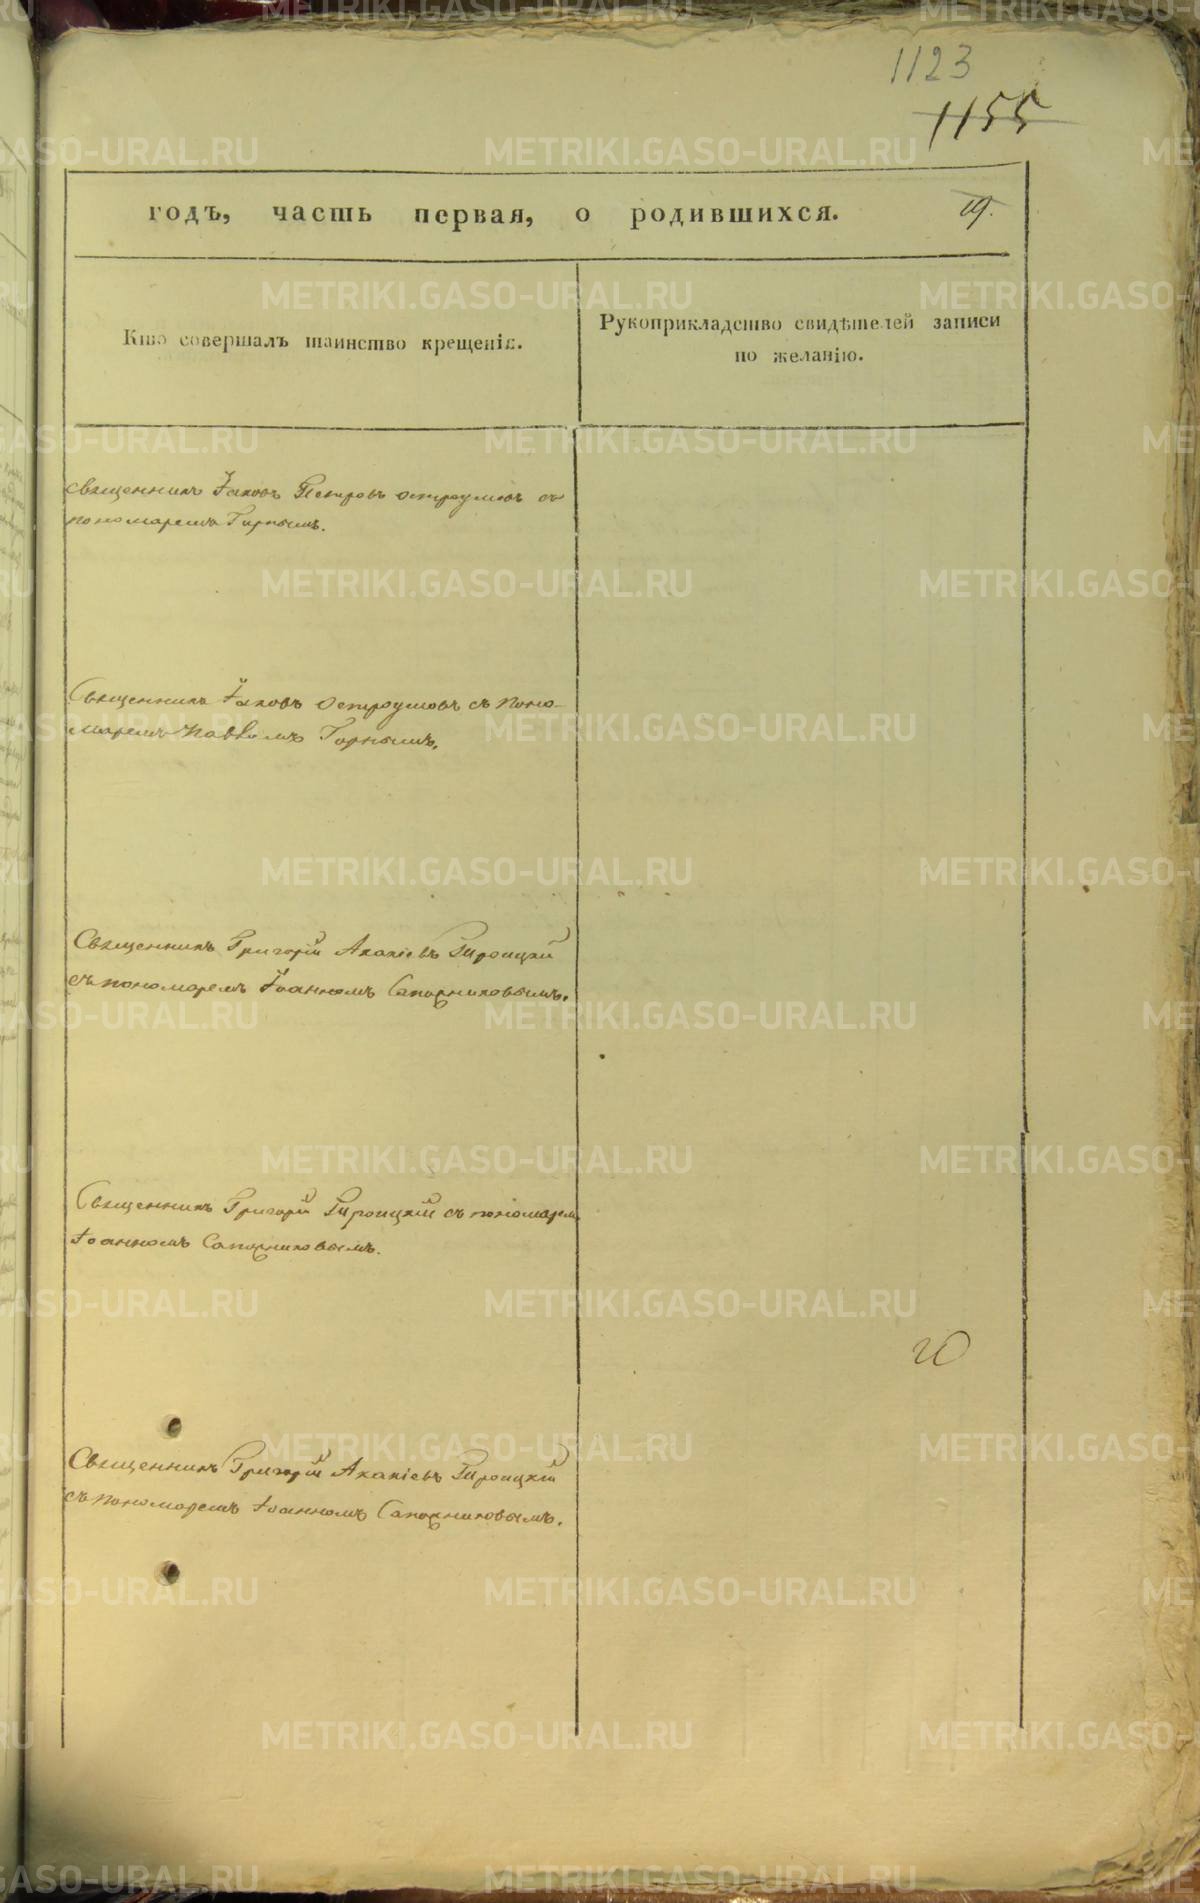 1123
1155
годъ, часть первая, о родившихся. 19.
Кто совершалъ таинство крещенія.
Рукоприкладство свидѣтелей записи
по желанію.
священникъ Іаковъ Петровъ Остроумовъ съ
пономаремъ Горнымъ.
Священникъ Іаковъ Остроумовъ съ поно-
маремъ Павломъ Горнымъ.
Священникъ Григорій Акакіевъ Троицкій
съ пономаремъ Іоанномъ Сапожниковымъ.
Священникъ Григорій Троицкій съ пономарем
Іоанномъ Сапожниковымъ.
Священникъ Григорій Акакіевъ Троицкій
съ пономаремъ Іоанномъ Сапожниковымъ.
METRIKI.GASO-URAL.RU